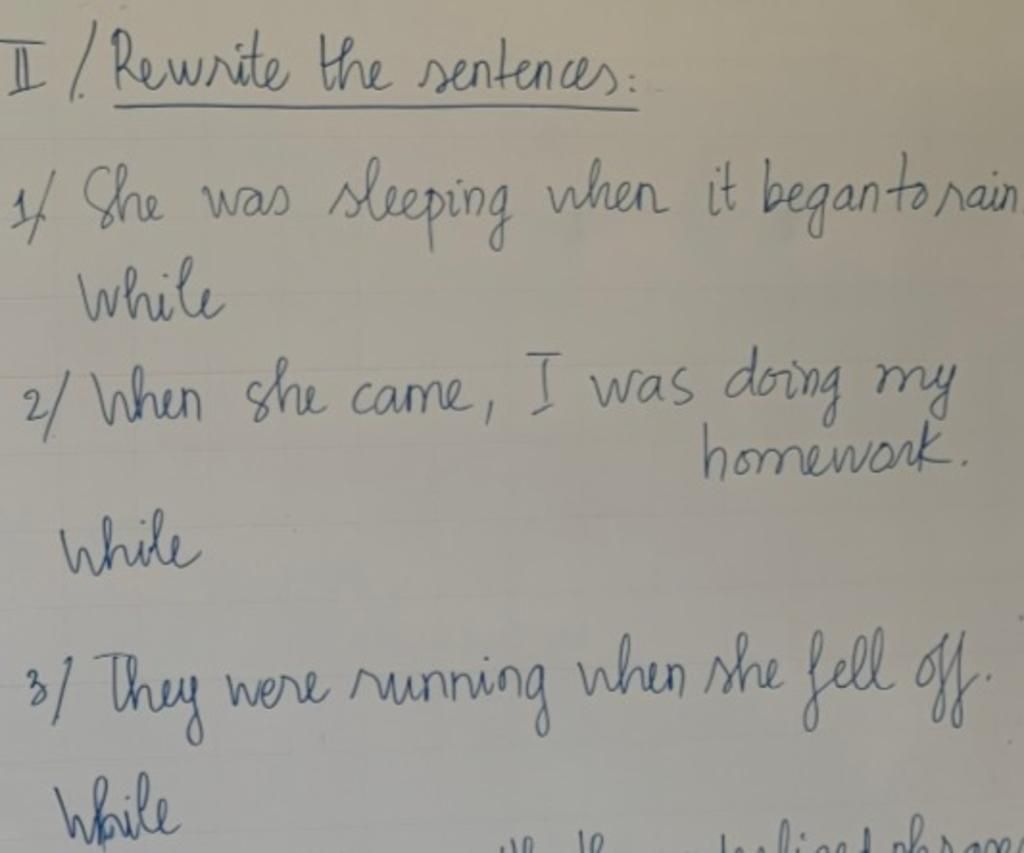 II / Rewrite the sentences:
1/ She was sleeping when it began to rain
While
2/ When she came, I was doing my
homework.
While
3/ They were running when she fell off.
While